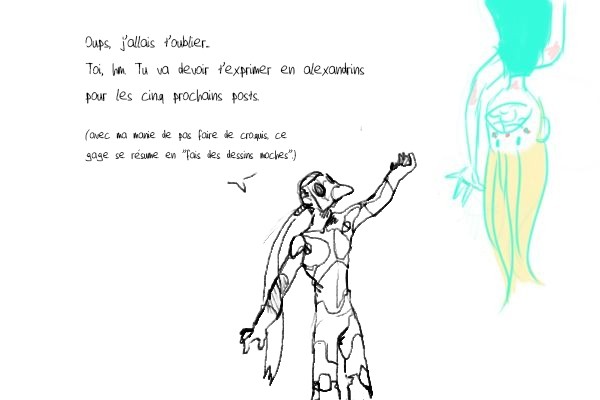 Oups, j'allais t'oublier...
Toi, hm. Tu va devoir t'exprimer en alexandrins
pour les cinq prochains posts.
(avec ma manie de pas faire de croquis, ce
gage se résume en "fais des dessins moches".)